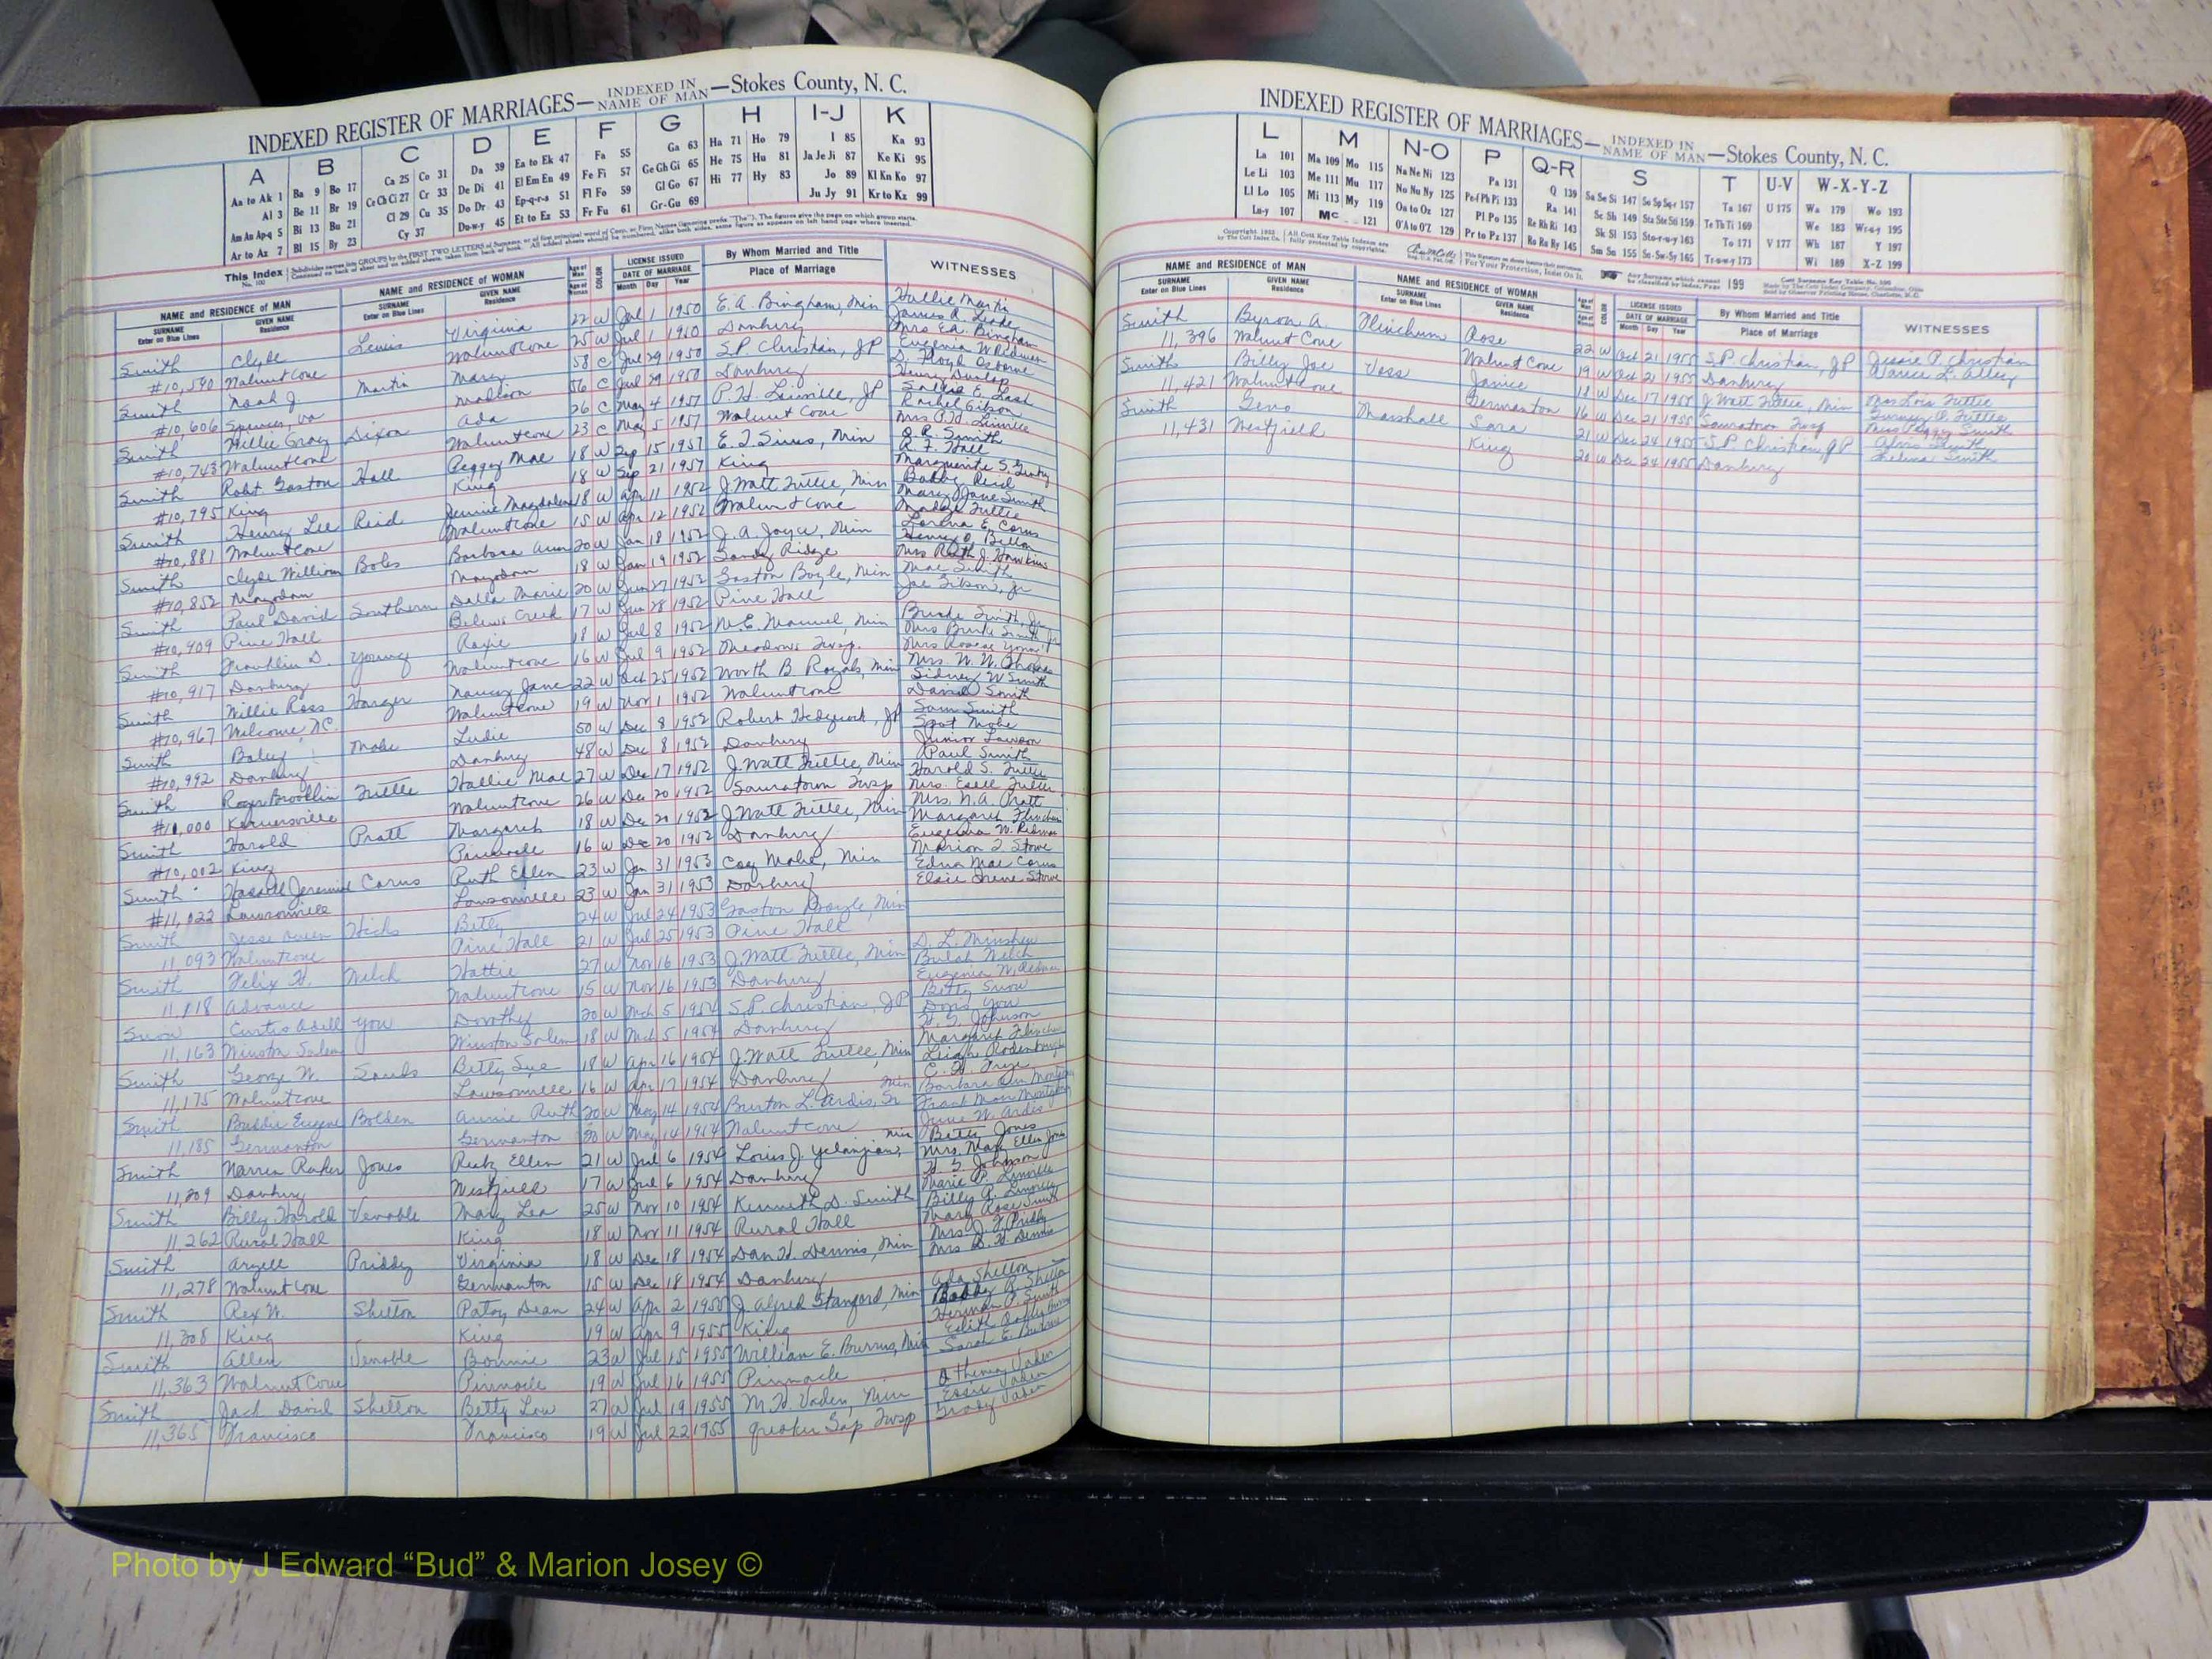 INDEXED REGISTER OF MARRIAGES—INDEXED IN NAME OF MAN—Stokes County, N. C.
A B C D E F G H I-J K
Aa to Ak 1 Ba 9 Bo 17 Ca 25 Co 31 Da 39 Ea to Ek 47 Fa 55 Ga 63 Ha 71 Ho 79 I 85 Ka 93
Al 3 Be 11 Br 19 Ce Ch Ci 27 Cr 33 De Di 41 El Em En 49 Fe Fi 57 Ge Gh Gi 65 He 75 Hu 81 Ja Je Ji 87 Ke Ki 95
Am An Ap-q 5 Bi 13 Bu 21 Cl 29 Cu 35 Do Dr 43 Ep-q-r-s 51 Fl Fo 59 Gl Go 67 Hi 77 Hy 83 Jo 89 Kl Kn Ko 97
Ar to Az 7 Bl 15 By 23 Cy 37 Du-w-y 45 Et to Ez 53 Fr Fu 61 Gr-Gu 69 Ju Jy 91 Kr to Kz 99
This Index No. 100
NAME and RESIDENCE of MAN NAME and RESIDENCE of WOMAN Age of Man Age of Woman COLOR LICENSE ISSUED By Whom Married and Title WITNESSES
SURNAME Enter on Blue Lines GIVEN NAME Residence SURNAME Enter on Blue Lines GIVEN NAME Residence DATE OF MARRIAGE Month Day Year Place of Marriage
Smith Clyde Lewis Virginia 22 W Jul 1 1950 E. A. Bingham, Min Hallie Martin
#10,590 Walnut Cove Walnut Cove 25 W Jul 1 1950 Danbury Mrs EA. Bingham
Smith Noah J. Martin Mary 58 C Jul 29 1950 S.P. Christian, JP Eugenia W Ridman
#10,606 Spencer, Va Madison 56 C Jul 29 1950 Danbury D. Floyd Osborne
Smith Willie Gray Dixon Ada 26 C May 4 1951 P. H. Linville, JP Sallie E. Lash
#10,743 Walnut Cove Walnut Cove 23 C May 5 1951 Walnut Cove Rachel Gibson
Mrs P.H. Linville
Smith Robt Gaston Hall Peggy Mae 18 W Sep 15 1951 E. T. Sims, Min O. R. Smith
#10,795 King King 18 W Sep 21 1951 King R. F. Hall
Smith Henry Lee Reid Jennie Magdalene 18 W Apr 11 1952 J Watt Tuttle, Min Bobby Reid
#10,881 Walnut Cove Walnut Cove 15 W Apr 12 1952 Walnut Cove Mary Jane Smith
Madge Tuttle
Smith Clyde William Boles Barbara Ann 20 W Jan 18 1952 J. A. Joyce, Min
#10,852 Mayodan Mayodan 18 W Jan 19 1952 Sandy Ridge Mrs Ruth J. Hawkins
Smith Paul David Southern Della Marie 20 W Jun 27 1952 Gaston Boyle, Min Mae Smith
#10,909 Pine Hall Belews Creek 17 W Jun 28 1952 Pine Hall Joe Gibson, Jr
Smith Franklin D. Young Roxie 18 W Jul 8 1952 W. E. Manuel, Min Burke Smith, Jr
#10,917 Danbury Walnut Cove 16 W Jul 9 1952 Meadows Twsp. Mrs Burke Smith Jr
Smith Willie Ross Harger Nancy Jane 22 W Oct 25 1952 Worth B Royals, Min Mrs. W. N. Rhodes
#10,967 Welcome, NC. Walnut Cove 19 W Nov 1 1952 Walnut Cove Sidney W Smith
David Smith
Smith Baley Mabe Ludie 50 W Dec 8 1952 Robert Hedgecock, JP Sam Smith
#10,992 Danbury Danbury 48 W Dec 8 1952 Danbury Spot Mabe
Junior Lawson
Smith Roger Franklin Tuttle Hallie Mae 27 W Dec 17 1952 J. Watt Tuttle, Min Paul Smith
#11,000 Kernersville Walnut Cove 26 W Dec 20 1952 Sauratown Twsp Harold S. Tuttle
Smith Harold Pratt Margaret 18 W Dec 20 1952 J Watt Tuttle, Min Mrs. N. A. Pratt
#10,002 King Pinnacle 16 W Dec 20 1952 Danbury Margaret Flinchum
Smith Carus Ruth Ellen 23 W Jan 31 1953 Coy Mabe, Min Marion T Stowe
#11,022 Lawsonville Lawsonville 23 W Jan 31 1953 Danbury Edna Mae Carus
Elsie Irene Stowe
Smith Jesse Owen Hicks Betty 24 W Jul 24 1953 Gaston Boyle, Min
11,093 Walnut Cove Pine Hall 21 W Jul 25 1953 Pine Hall
Smith Felix H. Welch Hattie 27 W Nov 16 1953 J. Watt Tuttle, Min D. L. Minshew
11,118 Advance Walnut Cove 15 W Nov 16 1953 Danbury Bulah Welch
Snow Curtis Odell You Dorothy 20 W Mch 5 1954 S.P. Christian, JP Betty Snow
11,163 Winston Salem Winston Salem 18 W Mch 5 1954 Danbury Doris You
H. G. Johnson
Smith George W. Sands Betty Sue 18 W Apr 16 1954 J. Watt Tuttle, Min Margaret Flinchum
11,175 Walnut Cove Lawsonville 16 W Apr 17 1954 Danbury
Smith Buddie Eugene Bolden Annie Ruth 20 W May 14 1954 Burton L. Ardis, Sr Min
11,185 Germanton Germanton 20 W May 14 1954 Walnut Cove June W. Ardis
Smith Warren Parker Jones Ruby Ellen 21 W Jul 6 1954 Louis J. Yelanjian, Min Betty Jones
11,209 Danbury Westfield 17 W Jul 6 1954 Danbury Mrs. Mary Ellen Jones
Smith Billy Harold Venable Mary Lea 25 W Nov 10 1954 Kenneth D. Smith Marie P. Linville
11,262 Rural Hall King 18 W Nov 11 1954 Rural Hall Billy R. Linville
Smith Argell Priddy Virginia 18 W Dec 18 1954 Dan H Dennis, Min Mrs. J. F Priddy
11,278 Walnut Cove Germanton 15 W Dec 18 1954 Danbury Mrs D. H Dennis
Smith Rex W. Shelton Patsy Dean 24 W Apr 2 1955 J. Alfred Stanford, Min Ada Shelton
11,308 King King 19 W Apr 9 1955 King Bobby R. Shelton
Smith Allen Venable Bonnie 23 W Jul 15 1955 William E. Burrus, Min
11,363 Walnut Cove Pinnacle 19 W Jul 16 1955 Pinnacle Sarah E. Burrus
Smith Jack David Shelton Betty Lou 27 W Jul 19 1955 M. H. Vaden, Min
11,365 Francisco Francisco 19 W Jul 22 1955 Quaker Gap Twsp Essie Vaden
Grady Vaden
INDEXED REGISTER OF MARRIAGES—INDEXED IN NAME OF MAN—Stokes County, N. C.
L M N-O P Q-R S T U-V W-X-Y-Z
La 101 Ma 109 Mo 115 Na Ne Ni 123 Pa 131 Q 139 Sa Se Si 147 So Sp Sq-r 157 Ta 167 U 175 Wa 179 Wo 193
Le Li 103 Me 111 Mu 117 No Nu Ny 125 Pe-f Ph Pi 133 Ra 141 Sc Sh 149 Sta Ste Sti 159 Te Th Ti 169 We 183 Wr-u-y 195
Ll Lo 105 Mi 113 My 119 Oa to Oz 127 Pl Po 135 Re Rh Ri 143 Sk Sl 153 Sto-r-u-y 163 To 171 V 177 Wh 187 Y 197
Lu-y 107 Mc 121 O'A to O'Z 129 Pr to Pz 137 Ro Ru Ry 145 Sm Sn 155 Su-Sw-Sy 165 Tr-u-w-y 173 Wi 189 X-Z 199
NAME and RESIDENCE of MAN NAME and RESIDENCE of WOMAN Age of Man Age of Woman COLOR LICENSE ISSUED By Whom Married and Title WITNESSES
SURNAME Enter on Blue Lines GIVEN NAME Residence SURNAME Enter on Blue Lines GIVEN NAME Residence DATE OF MARRIAGE Month Day Year Place of Marriage
Smith Byron A. Flinchum Rose 22 W Oct 21 1955 S.P Christian, JP Jessie P. Christian
11,396 Walnut Cove Walnut Cove 19 W Oct 21 1955 Danbury
Smith Billy Joe Voss Janice 18 W Dec 17 1955 J Watt Tuttle, Min Mrs Lois Tuttle
11,421 Walnut Cove Germanton 16 W Dec 21 1955 Sauratown Twsp
Smith Geno Marshall Sara 21 W Dec 24 1955 S.P Christian, JP
11,431 Westfield King 20 W Dec 24 1955 Danbury
Photo by J Edward “Bud” & Marion Josey ©